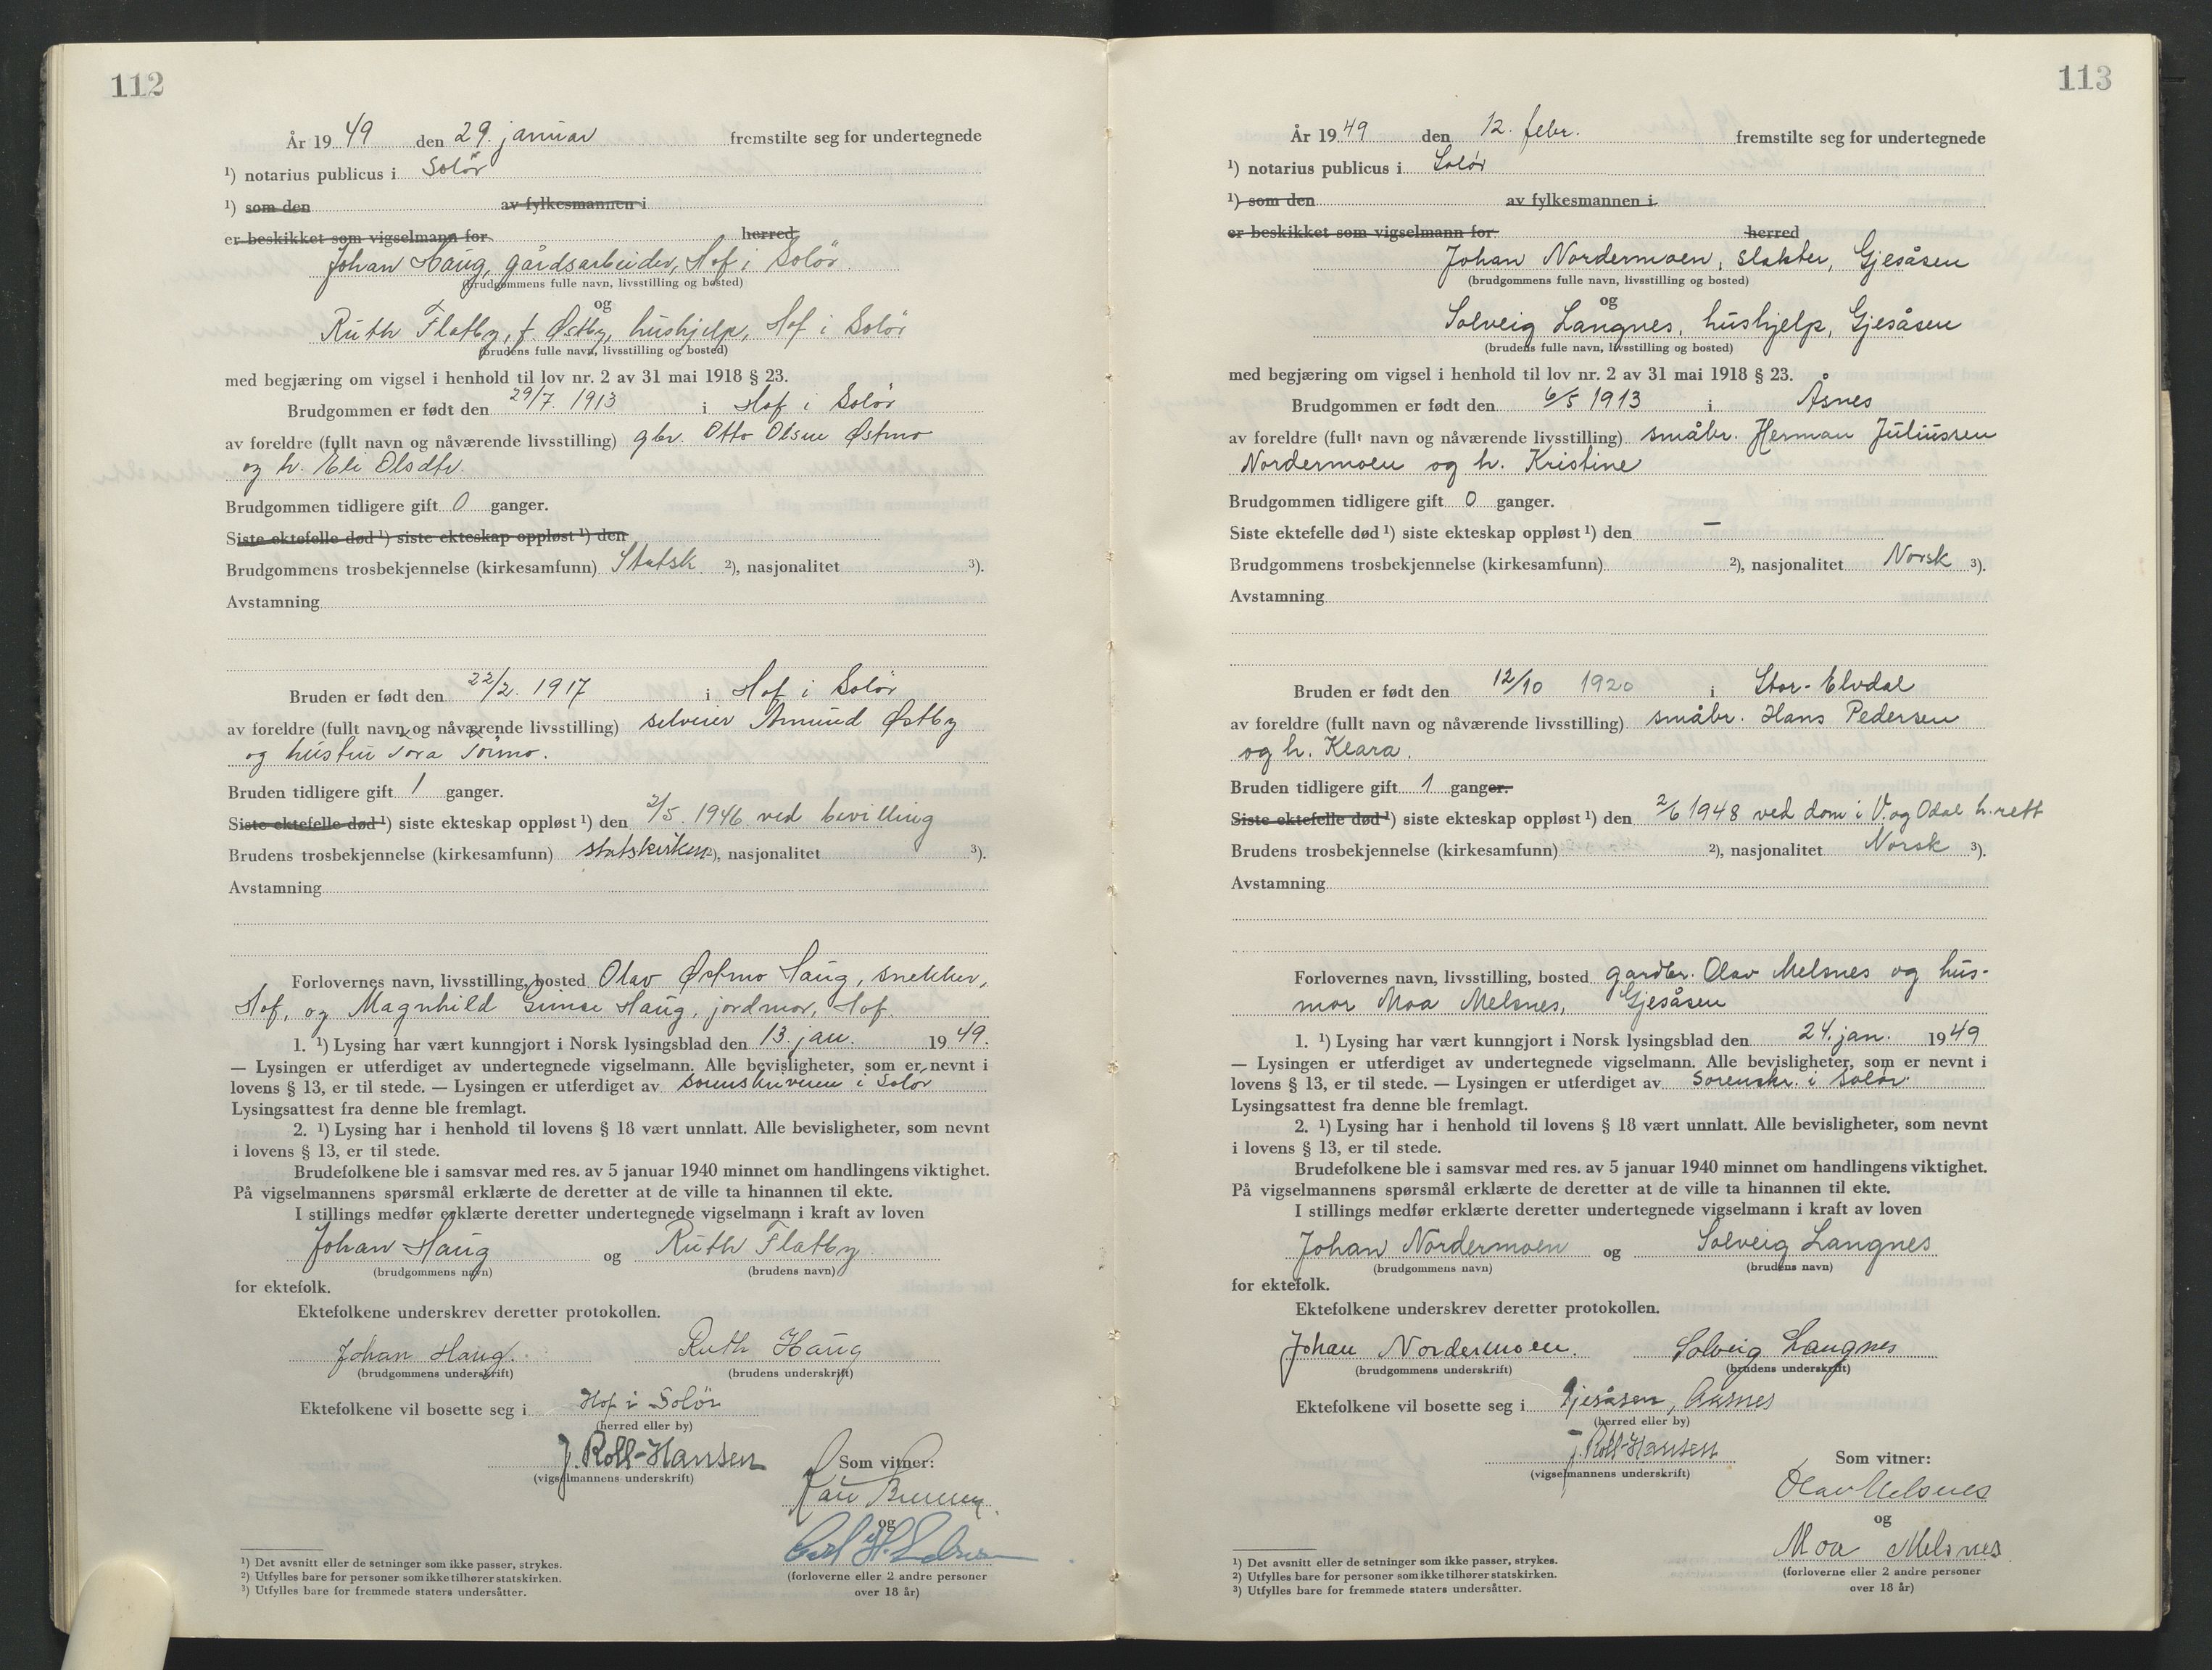 112
År 19 49 den 29. januar fremstilte seg for undertegnede
¹) notarius publicus i Solör
¹) som den av fylkesmannen i
er beskikket som vigselmann for herred
Johan Haug, gårdsarbeider, Hof i Solör
(brudgommens fulle navn, livsstilling og bosted)
og
Ruth Flatby, f. Østby, hushjelp, Hof i Solör
(brudens fulle navn, livsstilling og bosted)
med begjæring om vigsel i henhold til lov nr. 2 av 31 mai 1918 § 23.
Brudgommen er født den 29/7. 1913 i Hof i Solör
av foreldre (fullt navn og nåværende livsstilling) gbr. Otto Olsen Østmo
og h. Eli Olsdtr.
Brudgommen tidligere gift 0 ganger.
Siste ektefelle død ¹) siste ekteskap oppløst ¹) den
Brudgommens trosbekjennelse (kirkesamfunn) Statsk. ²), nasjonalitet ³).
Avstamning
Bruden er født den 22/2. 1917 i Hof i Solör
av foreldre (fullt navn og nåværende livsstilling) selveier Amund Østby
og hustru Tora Törmo.
Bruden tidligere gift 1 ganger.
Siste ektefelle død ¹) siste ekteskap oppløst ¹) den 2/5. 1946 ved bevilling
Brudens trosbekjennelse (kirkesamfunn) statskirken ²), nasjonalitet ³).
Avstamning
Forlovernes navn, livsstilling, bosted Olav Østmo Haug, snekker,
Hof, og Magnhild Haug, jordmor, Hof.
1. ¹) Lysing har vært kunngjort i Norsk lysingsblad den 13. jan. 19 49.
— Lysingen er utferdiget av undertegnede vigselmann. Alle bevisligheter, som er nevnt i
lovens § 13, er til stede. — Lysingen er utferdiget av sorenskriveren i Solör
Lysingsattest fra denne ble fremlagt.
2. ¹) Lysing har i henhold til lovens § 18 vært unnlatt. Alle bevisligheter, som nevnt
i lovens § 13, er til stede.
Brudefolkene ble i samsvar med res. av 5 januar 1940 minnet om handlingens viktighet.
På vigselmannens spørsmål erklærte de deretter at de ville ta hinannen til ekte.
I stillings medfør erklærte deretter undertegnede vigselmann i kraft av loven
Johan Haug og Ruth Flatby
(brudgommens navn) (brudens navn)
for ektefolk.
Ektefolkene underskrev deretter protokollen.
Johan Haug. Ruth Haug
(brudgommens underskrift) (brudens underskrift)
Ektefolkene vil bosette seg i Hof i Solör
(herred eller by)
J. Roll-Hansen
(vigselmannens underskrift)
Som vitner:
og
(forloverne eller 2 andre personer
over 18 år)
¹) Det avsnitt eller de setninger som ikke passer, strykes.
²) Utfylles bare for personer som ikke tilhører statskirken.
³) Utfylles bare for fremmede staters undersåtter.
113
År 19 49 den 12. febr. fremstilte seg for undertegnede
¹) notarius publicus i Solör
¹) som den av fylkesmannen i
er beskikket som vigselmann for herred
Johan Nordermoen, slakter, Gjesåsen
(brudgommens fulle navn, livsstilling og bosted)
og
Solveig Langnes, hushjelp, Gjesåsen
(brudens fulle navn, livsstilling og bosted)
med begjæring om vigsel i henhold til lov nr. 2 av 31 mai 1918 § 23.
Brudgommen er født den 6/5 1913 i Åsnes
av foreldre (fullt navn og nåværende livsstilling) småbr. Herman Juliussen
Nordermoen og h. Kristine
Brudgommen tidligere gift 0 ganger.
Siste ektefelle død ¹) siste ekteskap oppløst ¹) den —
Brudgommens trosbekjennelse (kirkesamfunn) ²), nasjonalitet Norsk ³).
Avstamning
Bruden er født den 12/10 1920 i Stor-Elvdal
av foreldre (fullt navn og nåværende livsstilling) småbr. Hans Pedersen
og h. Klara.
Bruden tidligere gift 1 ganger.
Siste ektefelle død ¹) siste ekteskap oppløst ¹) den 2/6 1948 ved dom i V. og Odal h.rett
Brudens trosbekjennelse (kirkesamfunn) ²), nasjonalitet Norsk ³).
Avstamning
Forlovernes navn, livsstilling, bosted gardbr. Olav Melsnes og hus-
mor Moa Melsnes, Gjesåsen
1. ¹) Lysing har vært kunngjort i Norsk lysingsblad den 24. jan. 19 49
— Lysingen er utferdiget av undertegnede vigselmann. Alle bevisligheter, som er nevnt i
lovens § 13, er til stede. — Lysingen er utferdiget av Sorenskr. i Solör.
Lysingsattest fra denne ble fremlagt.
2. ¹) Lysing har i henhold til lovens § 18 vært unnlatt. Alle bevisligheter, som nevnt
i lovens § 13, er til stede.
Brudefolkene ble i samsvar med res. av 5 januar 1940 minnet om handlingens viktighet.
På vigselmannens spørsmål erklærte de deretter at de ville ta hinannen til ekte.
I stillings medfør erklærte deretter undertegnede vigselmann i kraft av loven
Johan Nordermoen og Solveig Langnes
(brudgommens navn) (brudens navn)
for ektefolk.
Ektefolkene underskrev deretter protokollen.
Johan Nordermoen. Solveig Langnes
(brudgommens underskrift) (brudens underskrift)
Ektefolkene vil bosette seg i Gjesåsen, Aasnes
(herred eller by)
J. Roll-Hansen
(vigselmannens underskrift)
Som vitner:
Olav Melsnes
og
Moa Melsnes
(forloverne eller 2 andre personer
over 18 år)
¹) Det avsnitt eller de setninger som ikke passer, strykes.
²) Utfylles bare for personer som ikke tilhører statskirken.
³) Utfylles bare for fremmede staters undersåtter.